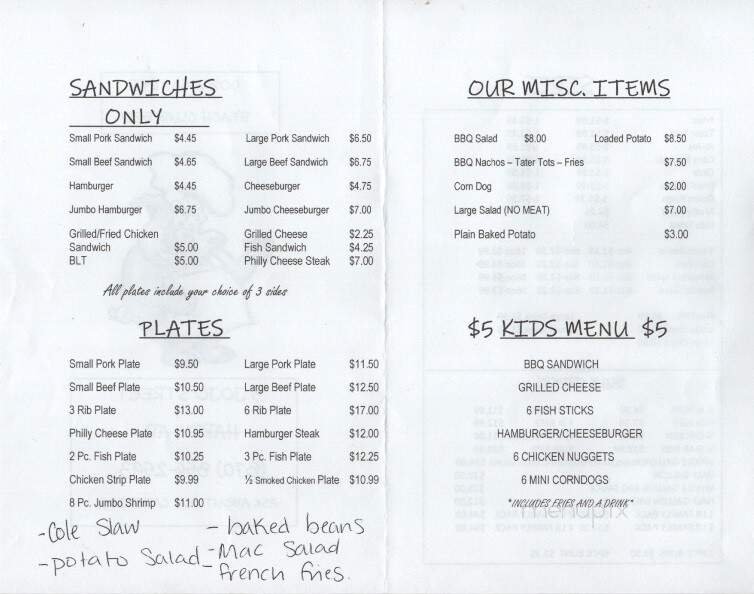 SANDWICHES
ONLY
Small Pork Sandwich $4.45 Large Pork Sandwich $6.50
Small Beef Sandwich $4.65 Large Beef Sandwich $6.75
Hamburger $4.45 Cheeseburger $4.75
Jumbo Hamburger $6.75 Jumbo Cheeseburger $7.00
Grilled/Fried Chicken Grilled Cheese $2.25
Sandwich $5.00 Fish Sandwich $4.25
BLT $5.00 Philly Cheese Steak $7.00
All plates include your choice of 3 sides
PLATES
Small Pork Plate $9.50 Large Pork Plate $11.50
Small Beef Plate $10.50 Large Beef Plate $12.50
3 Rib Plate $13.00 6 Rib Plate $17.00
Philly Cheese Plate $10.95 Hamburger Steak $12.00
2 Pc. Fish Plate $10.25 3 Pc. Fish Plate $12.25
Chicken Strip Plate $9.99 ½ Smoked Chicken Plate $10.99
8 Pc. Jumbo Shrimp $11.00
-Cole Slaw - baked beans
-potato Salad - Mac Salad
- french fries.
OUR MISC. ITEMS
BBQ Salad $8.00 Loaded Potato $8.50
BBQ Nachos – Tater Tots – Fries $7.50
Corn Dog $2.00
Large Salad (NO MEAT) $7.00
Plain Baked Potato $3.00
$5 KIDS MENU $5
BBQ SANDWICH
GRILLED CHEESE
6 FISH STICKS
HAMBURGER/CHEESEBURGER
6 CHICKEN NUGGETS
6 MINI CORNDOGS
*INCLUDES FRIES AND A DRINK*
menupix